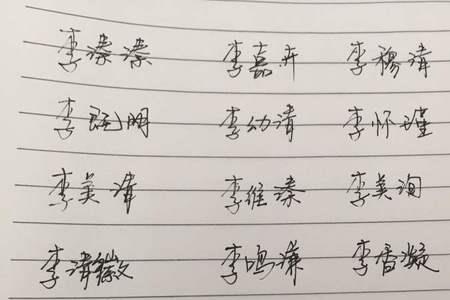 李溱溱 李嘉卉 李穆湋
李 明 李幼清 李怀瑾
李美湋 李维溱 李美洵
李 徽 李鸣谦 李香凝